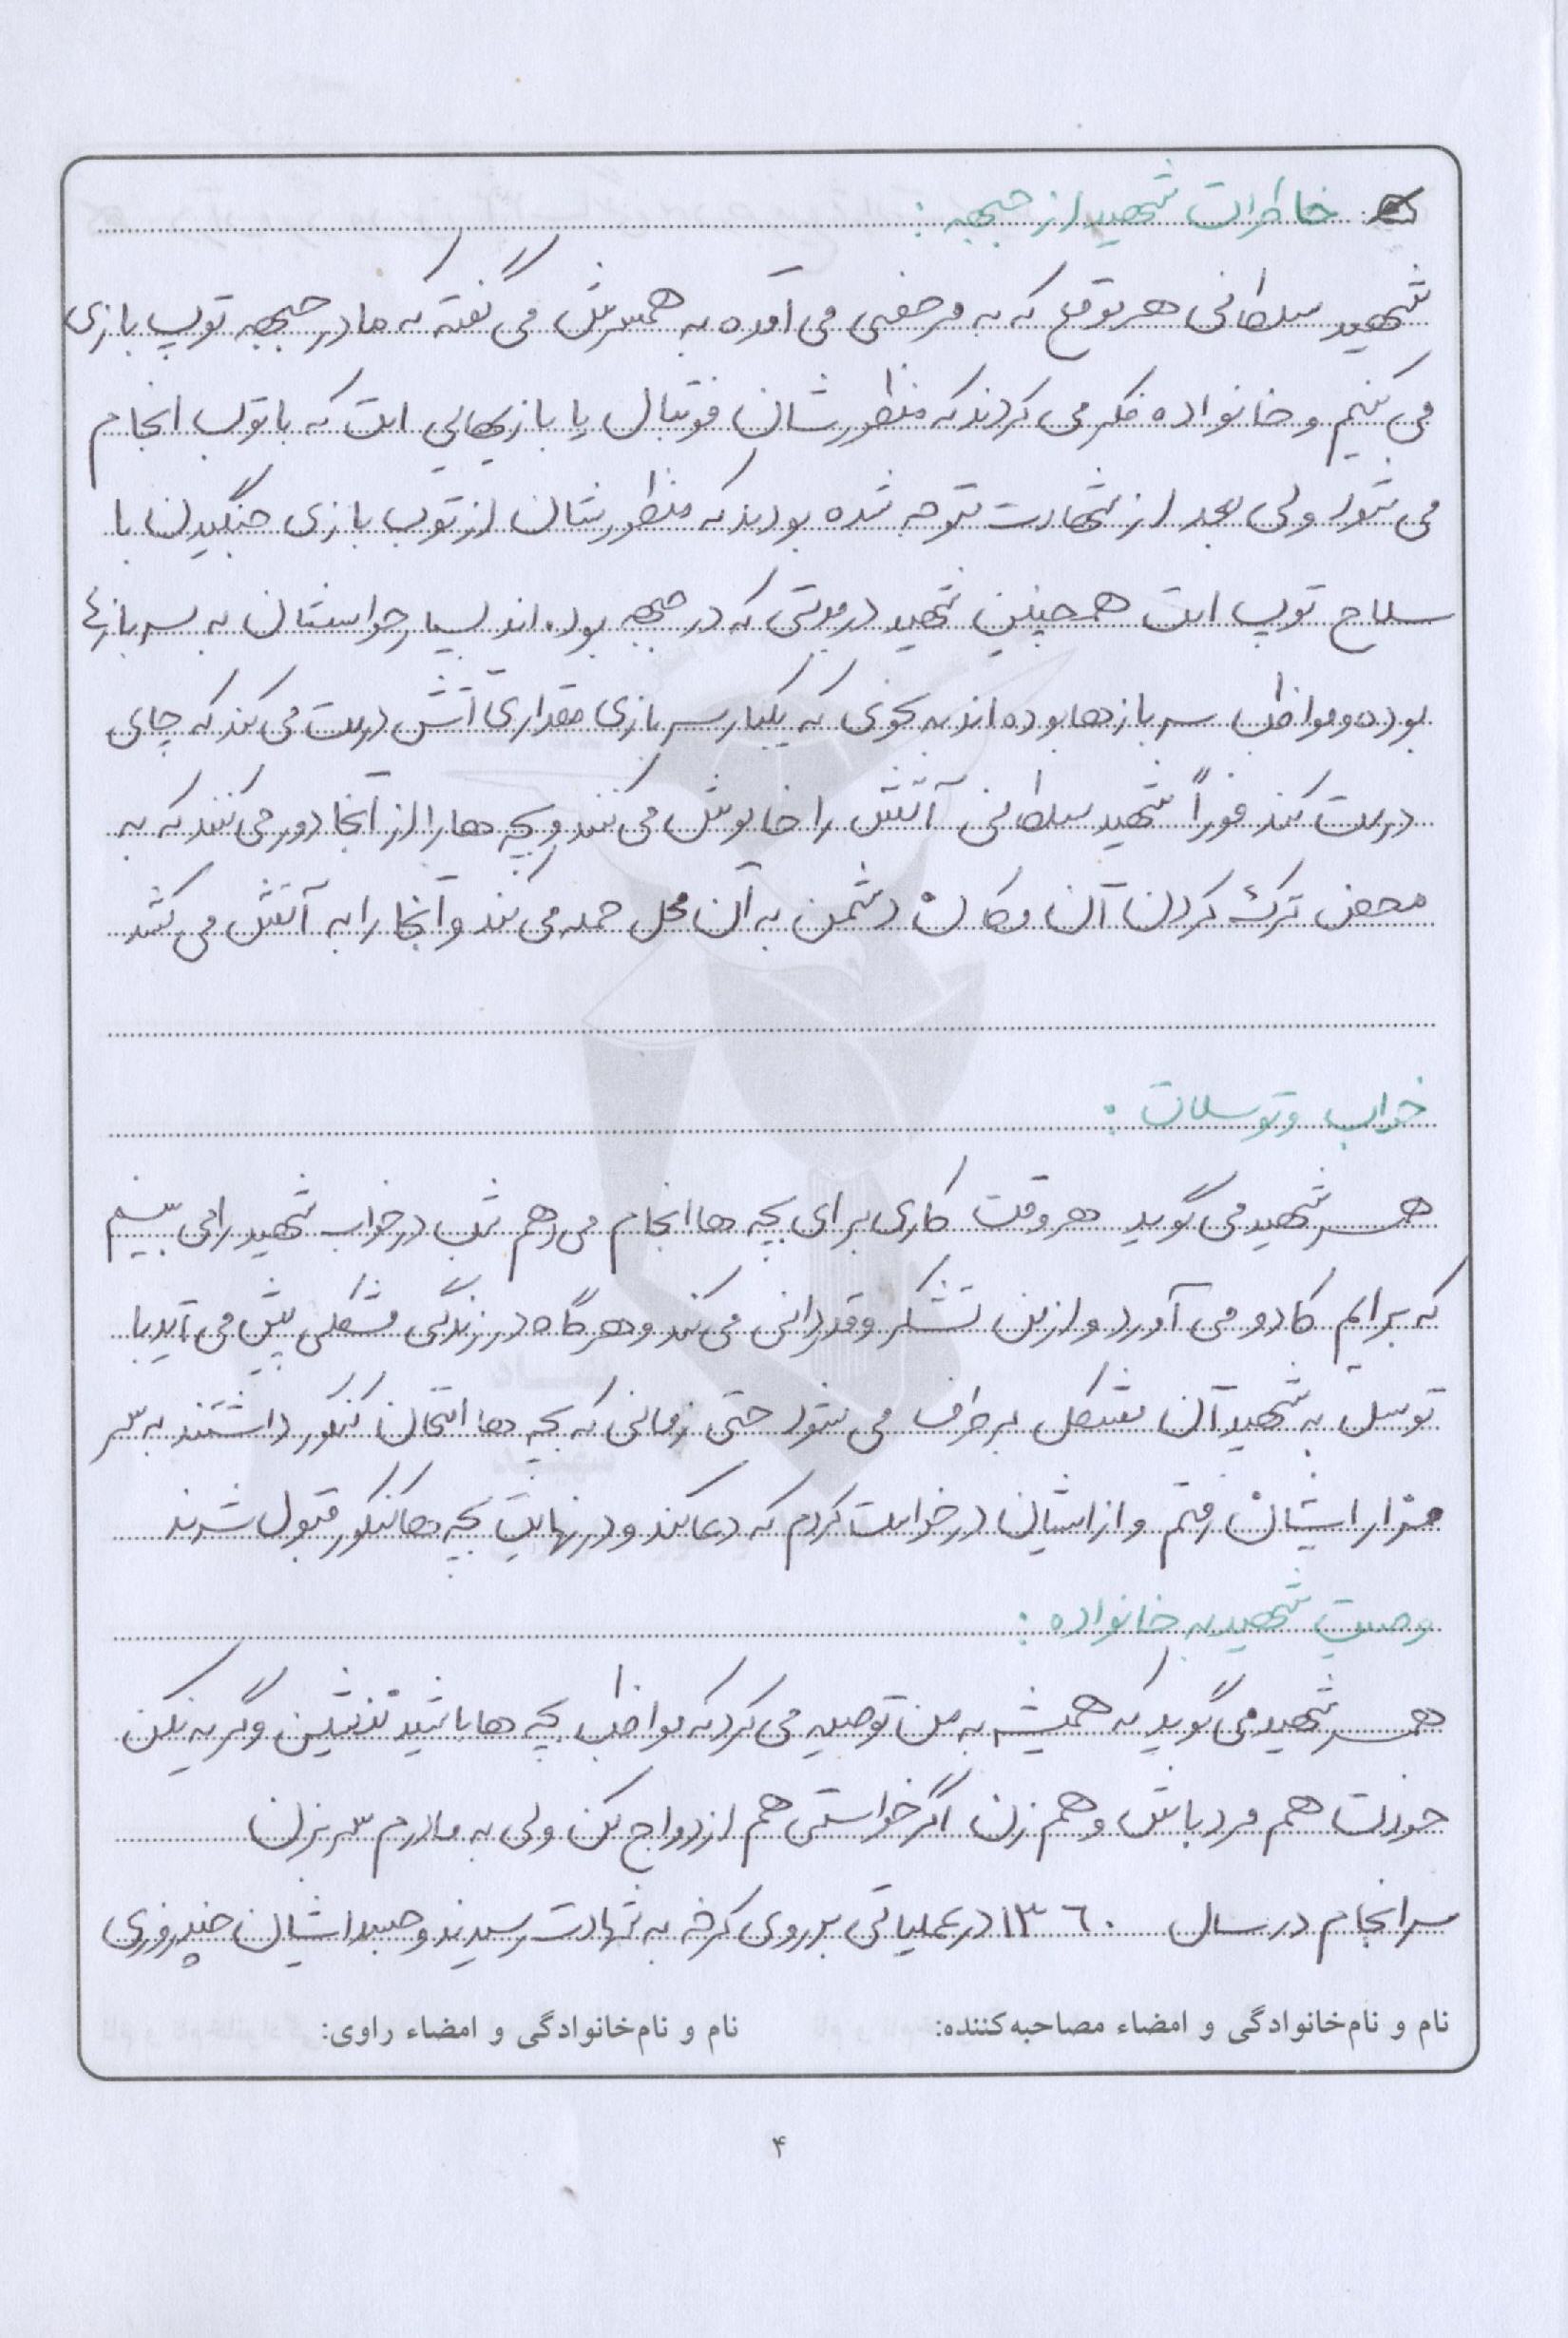 خاطرات شهید از جبهه :
شهید سلطانی هر موقع که به مرخصی می آمده به همسرش می گفته که ما در جبهه توپ بازی
می کنیم و خانواده فکر می کردند که منظورشان فوتبال یا بازیهایی است که با توپ انجام
می شود ولی بعد از شهادت متوجه شده بودند که منظورشان از توپ بازی جنگیدن با
سلاح توپ است همچنین شهید در مدتی که در جبهه بوده اند بسیار حواسشان به سربازها
بوده و مواظب سربازها بوده اند به نحوی که یکبار سربازی مقداری آتش درست می کند که چای
درست کند فوراً شهید سلطانی آتش را خاموش می کنند و بچه ها را از آنجا دور می کنند که به
محض ترک کردن آن مکان دشمن به آن محل حمله می کند و آنجا را به آتش می کشد
خواب و توسلات :
همسر شهید می گوید هر وقت کاری برای بچه ها انجام می دهم شب در خواب شهید را می بینم
که برایم کادو می آورد و از من تشکر و قدردانی می کند و هرگاه در زندگی مشکلی پیش می آید با
توسل به شهید آن مشکل برطرف می شود حتی زمانی که بچه ها امتحان کنکور داشتند به سر
مزار ایشان رفتم و از ایشان درخواست کردم که دعا کند و در نهایت بچه ها کنکور قبول شدند
وصیت شهید به خانواده :
همسر شهید می گوید که همیشه به من توصیه می کرد که مواظب بچه ها باشید ننشین و گریه نکن
خودت هم مرد باش و هم زن اگر خواستی هم ازدواج کن ولی به مادرم سر بزن
سرانجام در سال ۱۳۶۰ در عملیاتی بر روی کرخه به شهادت رسیدند و جسد ایشان چند روزی
نام و نام‌خانوادگی و امضاء مصاحبه‌کننده: نام و نام‌خانوادگی و امضاء راوی:
۴